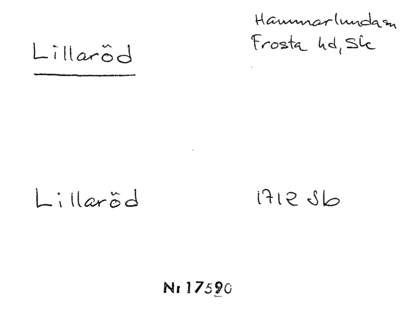 Lillaröd
Hammarlunda sn
Frosta hd, Sk
Lillaröd
1712 Jb
Nr 17590